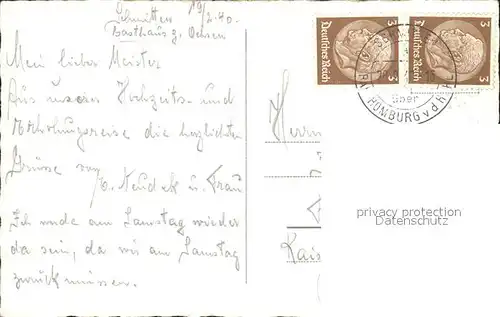 Schmitten 19/2.40.
Gasthaus z. Ochsen
Mein lieber Meister
Aus unserer Hochzeits- und
Erholungsreise die herzlichsten
Grüsse von
E. Neudek u. Frau
Ich werde am Samstag wieder
da sein, da wir am Samstag
zurück müssen.
Herrn
Kais
Deutsches Reich 3
Deutsches Reich 3
SCHMITTEN
über
HOMBURG v.d.H
privacy protection
Datenschutz